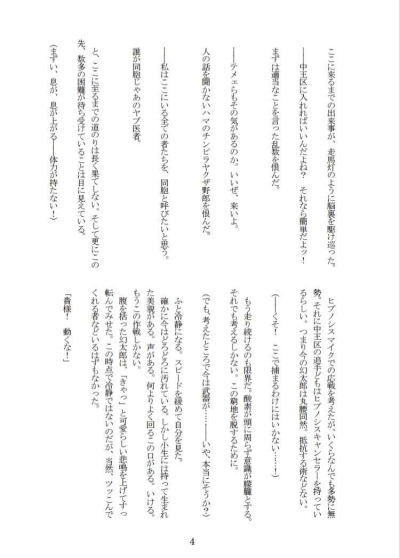 ここに来るまでの出来事が、走馬灯のように脳裏を駆け巡った。
――中王区に入れればいいんだよね？　それなら簡単だよッ！
まずは適当なことを言った乱数を恨んだ。
――テメェらもその気があるのか。いいぜ、来いよ。
人の話を聞かないハマのチンピラヤクザ野郎を恨んだ。
――私はここにいる全ての者たちを、同胞と呼びたいと思う。
誰が同胞じゃあのヤブ医者。
と、ここに至るまでの道のりは長く果てしない。そして更にこの
先、数多の困難が待ち受けていることは目に見えている。
（まずい、息が、息が上がる――体力が持たない！）
ヒプノシスマイクでの応戦を考えたが、いくらなんでも多勢に無
勢。それに中王区の追手どもはヒプノシスキャンセラーを持ってい
るらしい。つまり今の幻太郎は丸腰同然。抵抗する術などない。
（――くそ！　ここで捕まるわけにはいかない…！）
もう走り続けるのも限界だ。酸素が頭に周らず意識が朦朧とする。
それでも考えるしかない。この窮地を脱するために。
（でも、考えたところで今は武器が……――いや、本当にそうか？）
ふと冷静になる。スピードを緩めて自分を見た。
確かに今はどろどろに汚れている。しかし小生には持って生まれ
た美貌がある。声がある。何よりよく回るこの口がある。いける。
もうこの作戦しかない。
腹を括った幻太郎は、「きゃっ」と可愛らしい悲鳴を上げてすっ
転んでみせた。この時点で冷静ではないのだが、当然、ツッこんで
くれる者などいるはずもなかった。
「貴様！　動くな！」
4